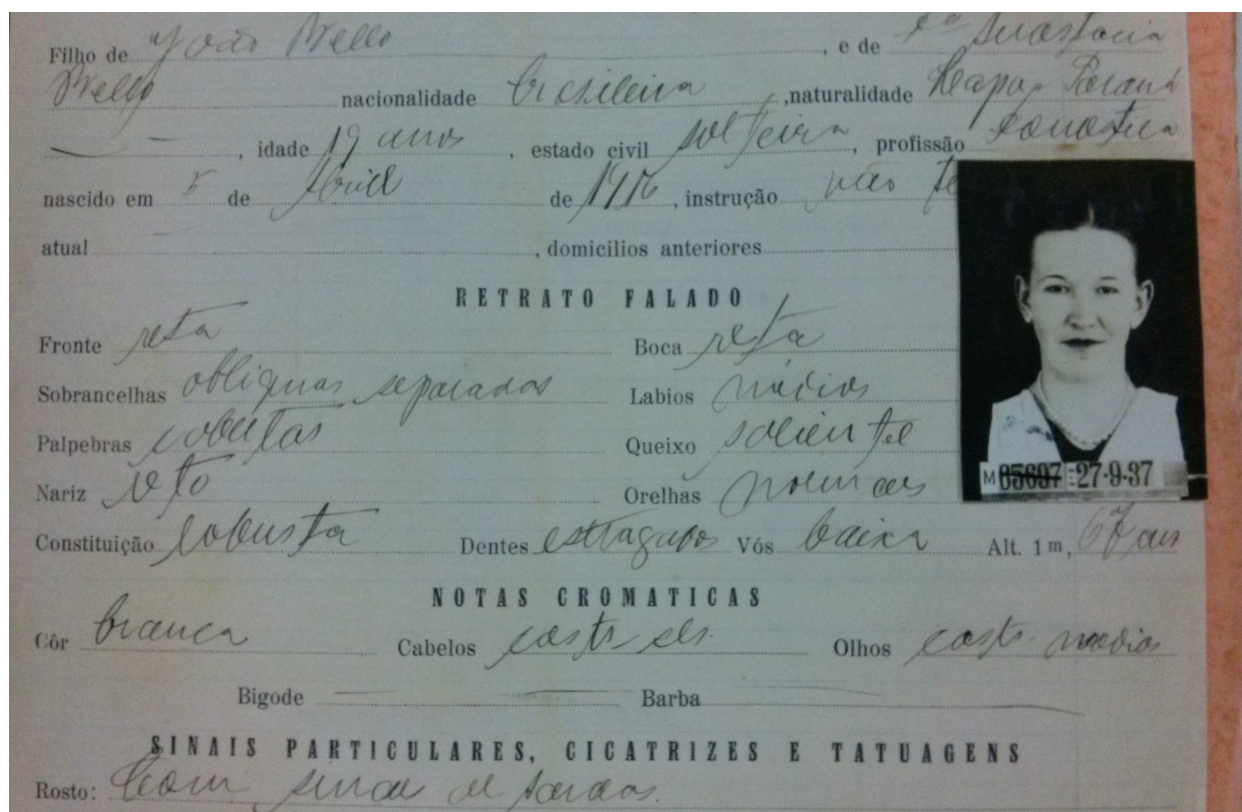 Filho de João Bello, e de Da Anastacia
Bello nacionalidade brasileira, naturalidade Paraná
—, idade 19 anos, estado civil solteira, profissão domestica
nascido em 5 de Abril de 1918, instrução não te
atual, domicilios anteriores
RETRATO FALADO
Fronte reta Boca reta
Sobrancelhas obliquas separadas Labios médios
Palpebras cobertas Queixo saliente
Nariz reto Orelhas
M 05697 :27-9-37
Constituição robusta Dentes estragados Vós baixa Alt. 1 m, 67 cms
NOTAS CROMATICAS
Côr branca Cabelos casts. Olhos casts. medios
Bigode — Barba —
SINAIS PARTICULARES, CICATRIZES E TATUAGENS
Rosto: Com de sardas.